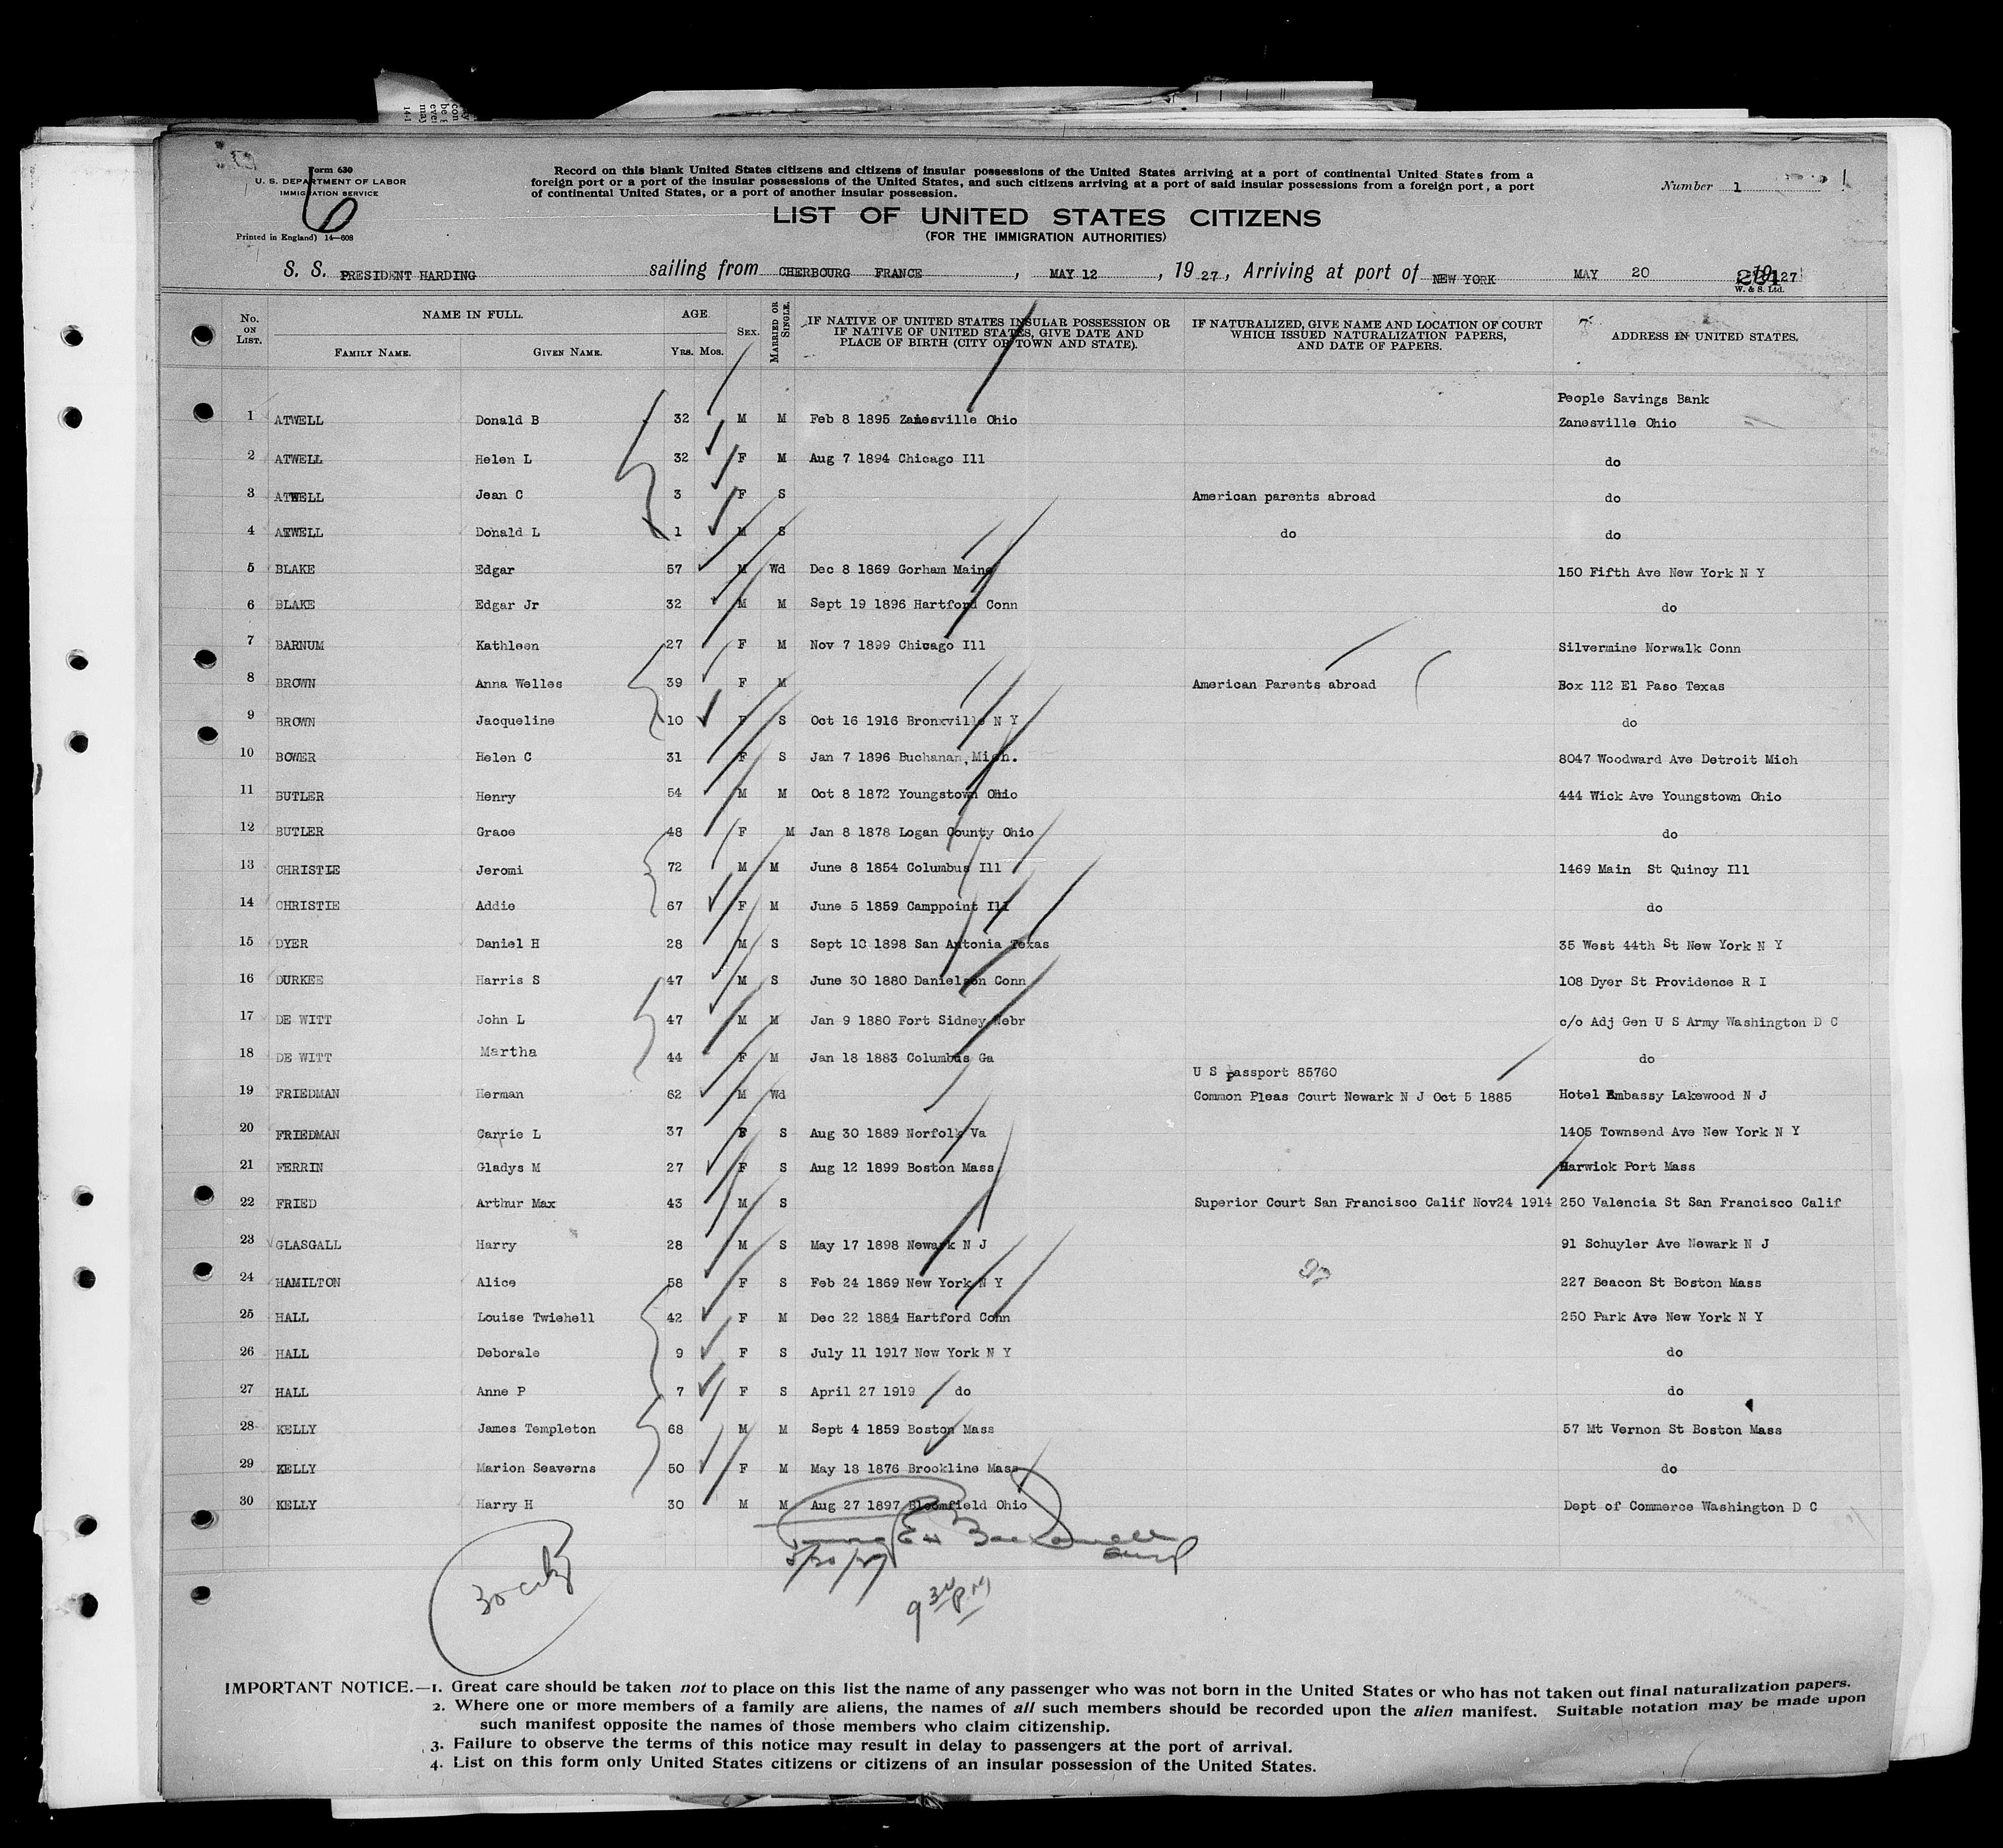 Form 630
U. S. DEPARTMENT OF LABOR
IMMIGRATION SERVICE
Printed in England) 14—608
Record on this blank United States citizens and citizens of insular possessions of the United States arriving at a port of continental United States from a
foreign port or a port of the insular possessions of the United States, and such citizens arriving at a port of said insular possessions from a foreign port, a port
of continental United States, or a port of another insular possession.
Number 1
LIST OF UNITED STATES CITIZENS
(FOR THE IMMIGRATION AUTHORITIES)
S. S. PRESIDENT HARDING sailing from CHERBOURG FRANCE, MAY 12, 1927, Arriving at port of NEW YORK MAY 20 1927
W. & S. Ltd.
No. ON LIST. NAME IN FULL. FAMILY NAME. GIVEN NAME. AGE. YRS. MOS. SEX. MARRIED OR SINGLE. IF NATIVE OF UNITED STATES INSULAR POSSESSION OR IF NATIVE OF UNITED STATES, GIVE DATE AND PLACE OF BIRTH (CITY OR TOWN AND STATE). IF NATURALIZED, GIVE NAME AND LOCATION OF COURT WHICH ISSUED NATURALIZATION PAPERS, AND DATE OF PAPERS. ADDRESS IN UNITED STATES.
People Savings Bank
1 ATWELL Donald B 32 M M Feb 8 1895 Zanesville Ohio Zanesville Ohio
2 ATWELL Helen L 32 F M Aug 7 1894 Chicago Ill do
3 ATWELL Jean C 3 F S American parents abroad do
4 ATWELL Donald L 1 M S do do
5 BLAKE Edgar 57 M Wd Dec 8 1869 Gorham Maine 150 Fifth Ave New York N Y
6 BLAKE Edgar Jr 32 M M Sept 19 1896 Hartford Conn do
7 BARNUM Kathleen 27 F M Nov 7 1899 Chicago Ill Silvermine Norwalk Conn
8 BROWN Anna Welles 39 F M American Parents abroad Box 112 El Paso Texas
9 BROWN Jacqueline 10 F S Oct 16 1916 Bronxville N Y do
10 BOWER Helen C 31 F S Jan 7 1896 Buchanan, Mich. 8047 Woodward Ave Detroit Mich
11 BUTLER Henry 54 M M Oct 8 1872 Youngstown Ohio 444 Wick Ave Youngstown Ohio
12 BUTLER Grace 48 F M Jan 8 1878 Logan County Ohio do
13 CHRISTIE Jeromi 72 M M June 8 1854 Columbus Ill 1469 Main St Quincy Ill
14 CHRISTIE Addie 67 F M June 5 1859 Camppoint Ill do
15 DYER Daniel H 28 M S Sept 10 1898 San Antonia Texas 35 West 44th St New York N Y
16 DURKEE Harris S 47 M S June 30 1880 Danielson Conn 108 Dyer St Providence R I
17 DE WITT John L 47 M M Jan 9 1880 Fort Sidney Nebr c/o Adj Gen U S Army Washington D C
18 DE WITT Martha 44 F M Jan 18 1883 Columbus Ga do
U S passport 85760
19 FRIEDMAN Herman 62 M Wd Common Pleas Court Newark N J Oct 5 1885 Hotel Embassy Lakewood N J
20 FRIEDMAN Carrie L 37 F S Aug 30 1889 Norfolk Va 1405 Townsend Ave New York N Y
21 FERRIN Gladys M 27 F S Aug 12 1899 Boston Mass Harwick Port Mass
22 FRIED Arthur Max 43 M S Superior Court San Francisco Calif Nov24 1914 250 Valencia St San Francisco Calif
23 GLASGALL Harry 28 M S May 17 1898 Newark N J 91 Schuyler Ave Newark N J
24 HAMILTON Alice 58 F S Feb 24 1869 New York N Y 227 Beacon St Boston Mass
25 HALL Louise Twiehell 42 F M Dec 22 1884 Hartford Conn 250 Park Ave New York N Y
26 HALL Deborale 9 F S July 11 1917 New York N Y do
27 HALL Anne P 7 F S April 27 1919 do do
28 KELLY James Templeton 68 M M Sept 4 1859 Boston Mass 57 Mt Vernon St Boston Mass
29 KELLY Marion Seaverns 50 F M May 18 1876 Brookline Mass do
30 KELLY Harry H 30 M M Aug 27 1897 Bloomfield Ohio Dept of Commerce Washington D C
5/20/27
9 30 P.M
IMPORTANT NOTICE.—1. Great care should be taken not to place on this list the name of any passenger who was not born in the United States or who has not taken out final naturalization papers.
2. Where one or more members of a family are aliens, the names of all such members should be recorded upon the alien manifest. Suitable notation may be made upon
such manifest opposite the names of those members who claim citizenship.
3. Failure to observe the terms of this notice may result in delay to passengers at the port of arrival.
4. List on this form only United States citizens or citizens of an insular possession of the United States.